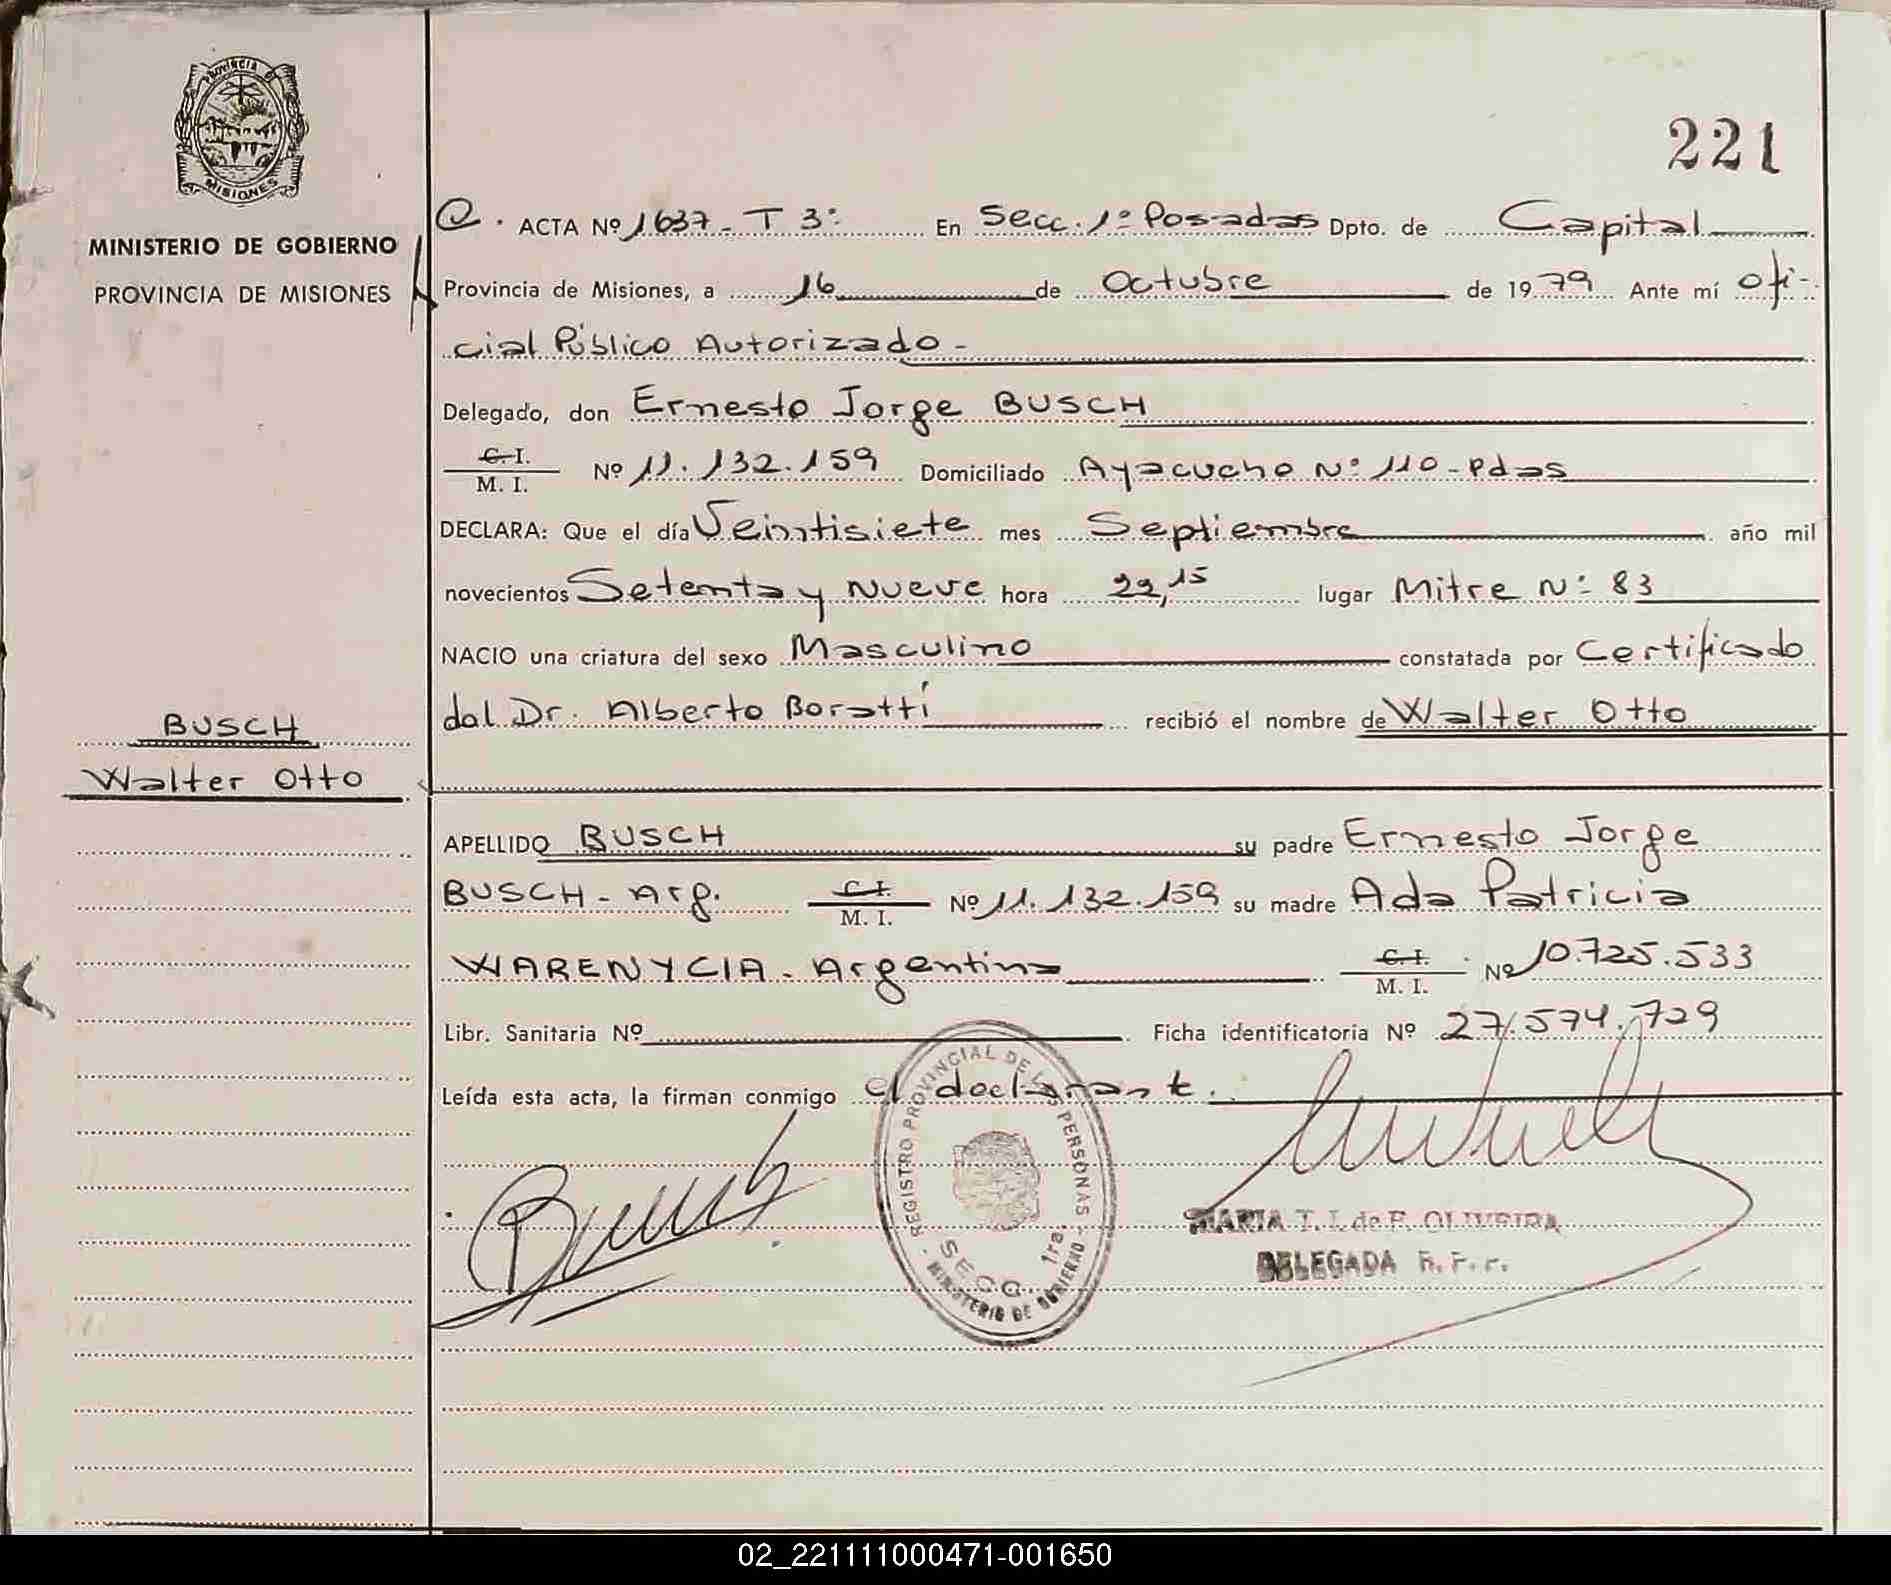 PROVINCIA DE
MISIONES
MINISTERIO DE GOBIERNO
PROVINCIA DE MISIONES
221
ACTA Nº 1637 - T 3º En Secc. 1º Posadas Dpto. de Capital
Provincia de Misiones, a 16 de Octubre de 1979 Ante mí ofi-
cial Público Autorizado -
Delegado, don Ernesto Jorge BUSCH
C. I.
M. I. Nº 11.132.159 Domiciliado Ayacucho Nº 110 - Pdas
DECLARA: Que el día Veintisiete mes Septiembre año mil
novecientos Setenta y Nueve hora 22,15 lugar Mitre Nº 83
NACIO una criatura del sexo Masculino constatada por Certificado
dal Dr. Alberto Boratti recibió el nombre de Walter Otto
BUSCH
Walter Otto
APELLIDO BUSCH su padre Ernesto Jorge
BUSCH - Arg. C. I.
M. I. Nº 11.132.159 su madre Ada Patricia
WARENYCIA - Argentina C. I.
M. I. Nº 10.725.533
Libr. Sanitaria Nº Ficha identificatoria Nº 27.574.729
Leída esta acta, la firman conmigo el declarante.
REGISTRO PROVINCIAL DE LAS PERSONAS
SECC. 1ra.
MINISTERIO DE GOBIERNO
MARIA T. I. de F. OLIVEIRA
DELEGADA
02_221111000471-001650